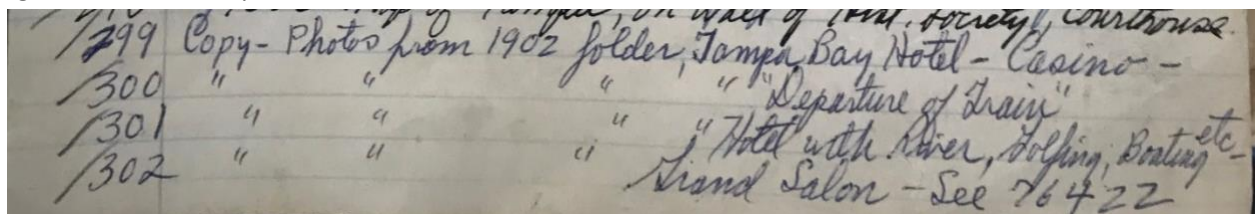 Map of Tampa, on Wall of Hist. Society, Courthouse.
1299 Copy - Photos from 1902 folder, Tampa Bay Hotel - Casino -
1300 " " " " "Departure of Train"
1301 " " " " Hotel with River, Golfing, Boating etc -
1302 " " " Grand Salon - See 76422